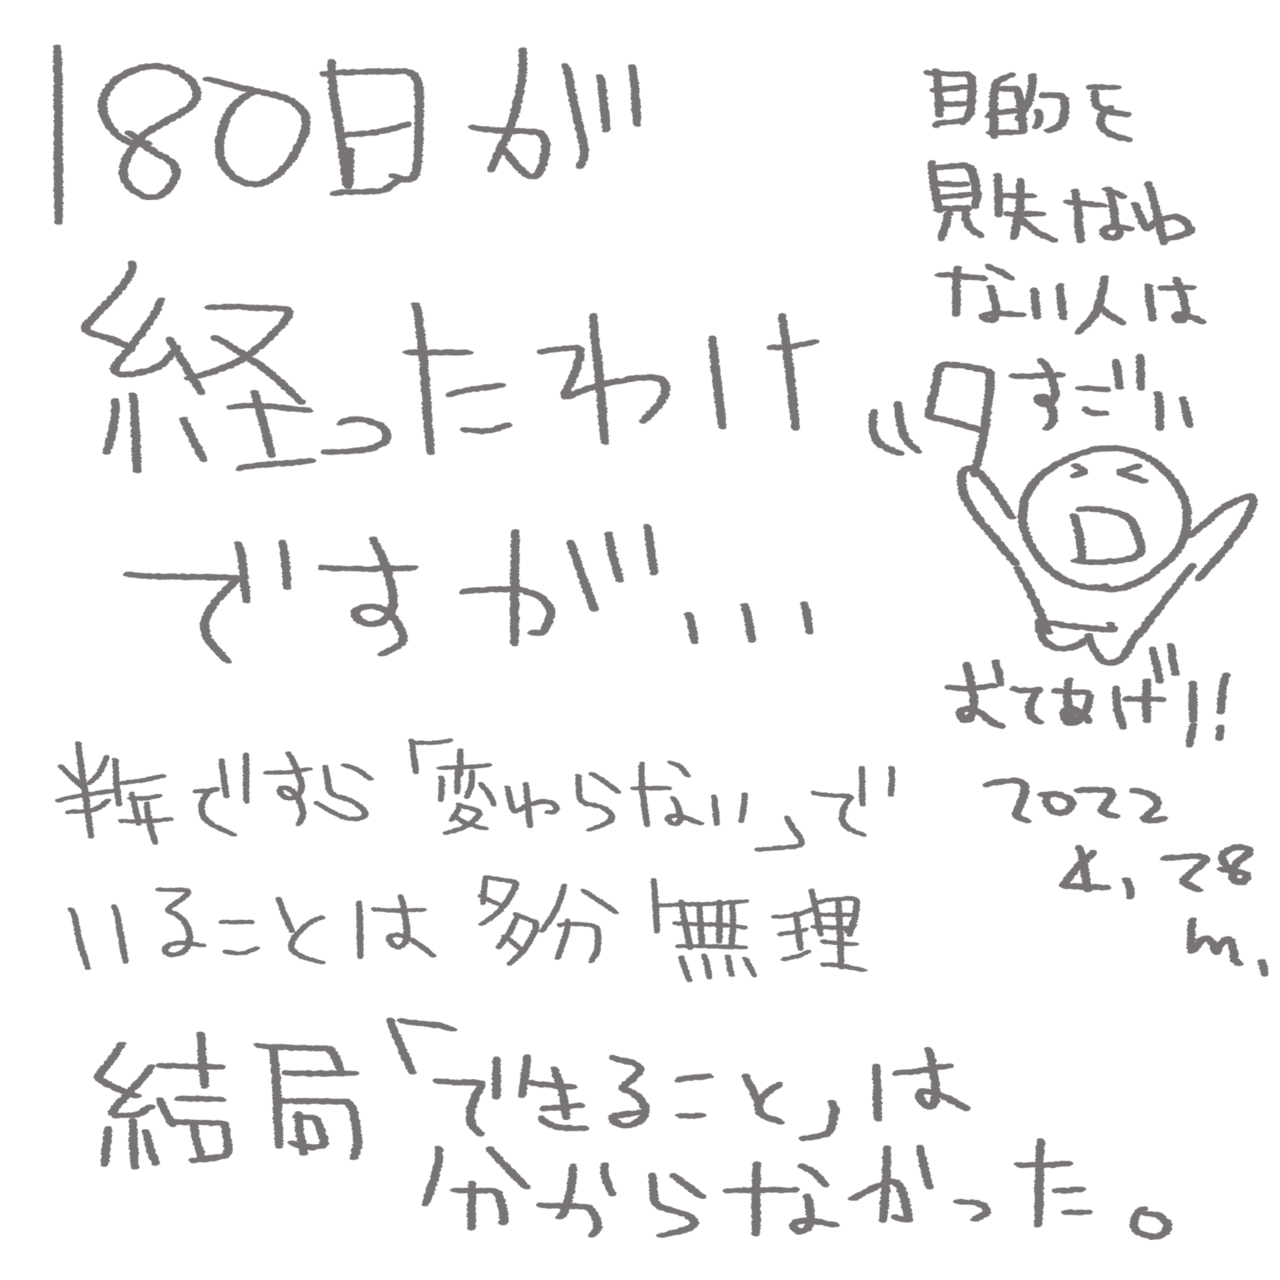 180日が
経ったわけ
ですが...
半年ですら「変わらない」で
いることは多分無理
結局「できること」は
分からなかった。
目的を
見失なわ
ない人は
すごい
おてあげ!!
2022
4.28
m.